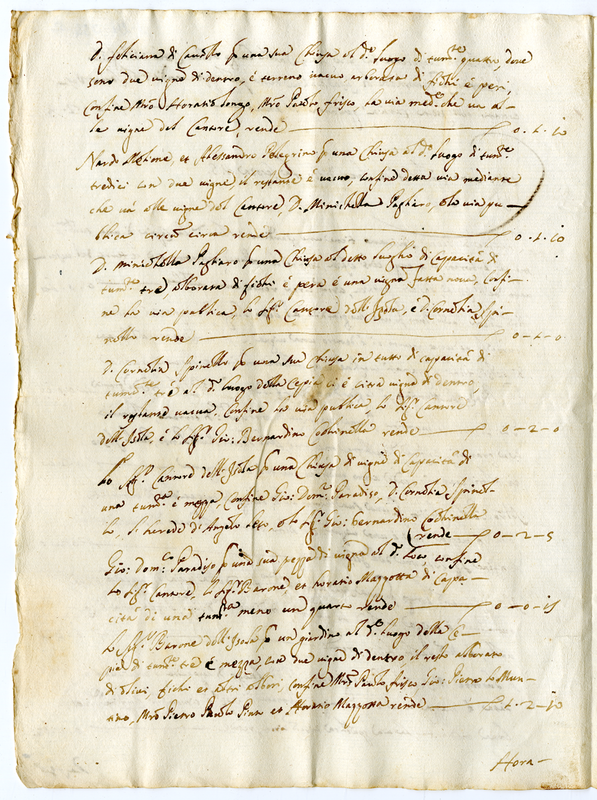 D. Feliciana di Candolo per una sua Chiusa al d.º luogo di tum.te quattro, dove
sono due vigne di dentro, è terreno vacuo arborato di fichi è peri,
confine Mro Horatio longo, Mro Paolo frisco, la via med.e che va al-
la vigne del Cantore, rende 0-1-10
Nardo et Alessandro Pelegrino per una Chiusa al d.º luogo di tum.te
tredici con due vigne il restante è vacuo, confine detta via mediante
che va alle vigne del Cantore D. Minichella Pagliaro, è la via pu-
blica circa rende 0-1-10
D. Minichella Pagliaro per una Chiusa al detto luogho di capacità di
tum.te tre, alborata di fichi è pera è una vigna fatta nova, confi-
na la via publica, lo Sig.r Cantore dell'Isola, è D. Cornelia Spi-
nello rende 0-1-0
D. Cornelia Spinello per una sua Chiusa in tutto di capacità di
tum.te trè al d.º luogo della Cepia ci è citra vigna di dentro,
il restante vacuo. Confine la via publica, lo Sig.r Cantore
dell'Isola, è lo Sig.r Gio: Bernardino Cochinella rende 0-2-0
Lo Sig.r Cantore dell'Isola per una Chiusa di vigna di Capacità di
una tum.ta è mezza, confine Gio: Dom.co Paradiso, D. Cornelia Spinel-
lo, li heredi di Angelo, è lo Sig.r Gio: Bernardino Cochinella
rende 0-2-5
Gio: Dom.co Paradiso per una sua pezza di vigna al d.º loco, confine
Lo Sig.r Cantore, lo Sig.r Barone et horatio Mazzotta di Capa-
cità di una tum.ta meno un quarto rende 0-0-15
Lo Sig.r Barone dell'Isola per un giardino al d.º luogo della Ce-
pia di tum.te tre è mezza, con due vigna di dentro il resto alborato
di olivi, fichi et altri albori, confine Mro Paulo frisco Gio: Pietro lo Mun-
tino, Mro Pietro Paolo Pinn et Horatio Mazzotta rende 1-2-10
Hora-